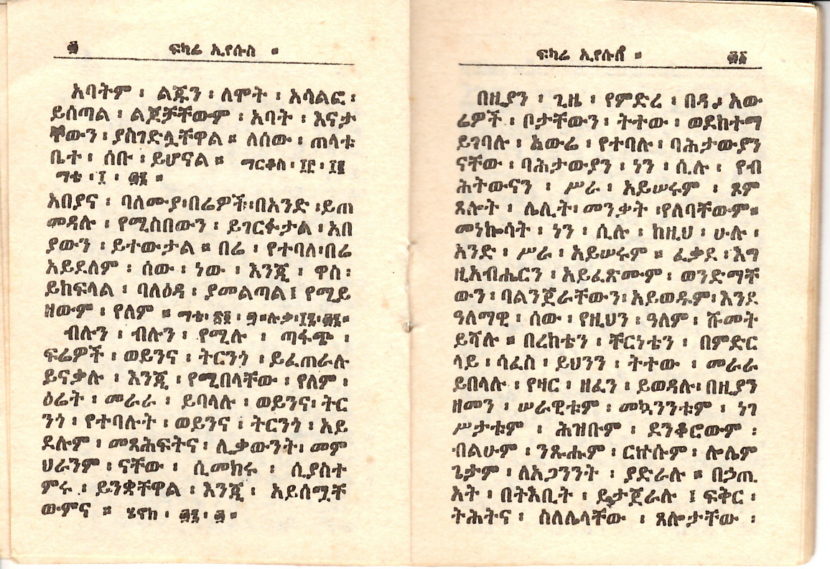 ፴ ፍካሬ ኢየሱስ ።
አባትም ፡ ልጁን ፡ ለሞት ፡ አሳልፎ ፡
ይሰጣል ፡ ልጆቻቸውም ፡ አባት ፡ እናታ
ቸውን ፡ ያስገድሏቸዋል ። ለሰው ፡ ጠላቱ
ቤተ ፡ ሰቡ ፡ ይሆናል ። ማርቆስ ፡ ፲፫ ፡ ፲፪
ማቴ ፡ ፲ ፡ ፴፮ ።
አበያና ፡ ባለሙያ፡በሬዎች፡በአንድ ፡ይጠ
መዳሉ ፡ የሚስበውን ፡ ይገርፉታል ፡ አበ
ያውን ፡ ይተውታል ። በሬ ፡ የተባለ፡በሬ
አይደለም ፡ ሰው ፡ ነው ፡ እንጂ ፡ ዋስ፡
ይከፍላል ፡ ባለዕዳ ፡ ያመልጣል፤ የሚይ
ዘውም ፡ የለም ።
ብሉን ፡ ብሉን ፡ የሚሉ ፡ ጣፋጭ ፡
ፍሬዎች ፡ ወይንና ፡ ትርንጎ ፡ ይፈጠራሉ
ይናቃሉ ፡ እንጂ ፡ የሚበላቸው ፡ የለም ፡
ዕሬት ፡ መራራ ፡ ይባላሉ ፡ ወይንና፡ ትር
ንጎ ፡ የተባሉት ፡ ወይንና ፡ ትርንጎ ፡ አይ
ደሉም ፡ መጻሕፍትና፡ ሊቃውንት፡ መም
ህራንም ፡ ናቸው ፡ ሲመክሩ ፡ ሲያስተ
ምሩ ፡ ይንቋቸዋል ፡ እንጂ ፡ አይሰሟቸ
ውምና ። ሄኖክ ፡
ፍካሬ ኢየሱስ ። ፴፩
በዚያን ፡ ጊዜ ፡ የምድረ ፡ በዳ፡ አው
ሬዎች ፡ ቦታቸውን ፡ ትተው ፡ ወደከተማ
ይገባሉ ፡ አውሬ ፡ የተባሉ ፡ ባሕታውያን
ናቸው ፡ ባሕታውያን ፡ ነን ፡ ሲሉ ፡ የብ
ሕትውናን ፡ ሥራ ፡ አይሠሩም ፡ ጾም
ጸሎት ፡ ሌሊት፡ መንቃት ፡የለባቸውም።
መነኰሳት ፡ ነን ፡ ሲሉ ፡ ከዚህ ፡ ሁሉ ፡
አንድ ፡ ሥራ ፡ አይሠሩም ። ፈቃደ ፡እግ
ዚአብሔርን ፡ አይፈጽሙም ፡ ወንድማቸ
ውን፡ ባልንጀራቸውን፡ አይወዱም፡ እንደ
ዓለማዊ ፡ ሰው ፡ የዚህን ፡ ዓለም ፡ ሹመት
ይሻሉ ። በረከቴን ፡ ቸርነቴን ፡ በምድር
ላይ ፡ ሳፈስ ፡ ይህንን ፡ ትተው ፡ መራራ
ይበላሉ ፡ የዛር ፡ ዘፈን ፡ ይወዳሉ፡ በዚያን
ዘመን ፡ ሠራዊቱም ፡ መኳንንቱም ፡ ነገ
ሥታቱም ፡ ሕዝቡም ፡ ደንቆሮውም ፡
ብልሁም ፡ ንጹሑም ፡ ርኩሱም ፡ ሎሌም
ጌታም ፡ ለአጋንንት ፡ ያድራሉ ። በኃጢ
አት ፡ በትእቢት ፡ ይታጀራሉ ፤ ፍቅር ፡
ትሕትና ፡ ስለሌላቸው ፡ ጸሎታቸው ፡